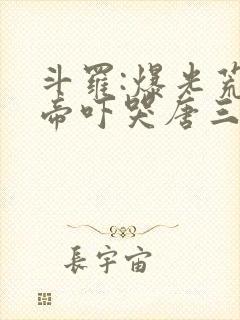 斗羅:爆光荒
帝吓哭唐三
長宇宙